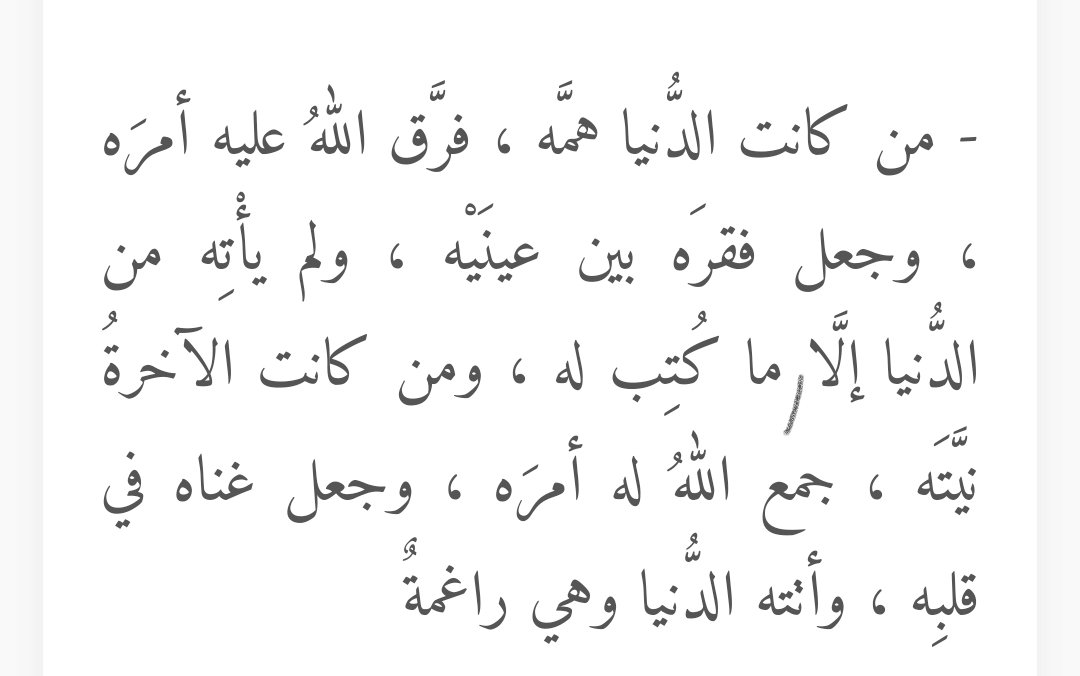 - من كانت الدُّنيا همَّه ، فرَّق اللهُ عليه أمرَه
، وجعل فقرَه بين عينَيْه ، ولم يأْتِه من
الدُّنيا إلَّا ما كُتِب له ، ومن كانت الآخرةُ
نيَّتَه ، جمع اللهُ له أمرَه ، وجعل غناه في
قلبِه ، وأتته الدُّنيا وهي راغمةٌ